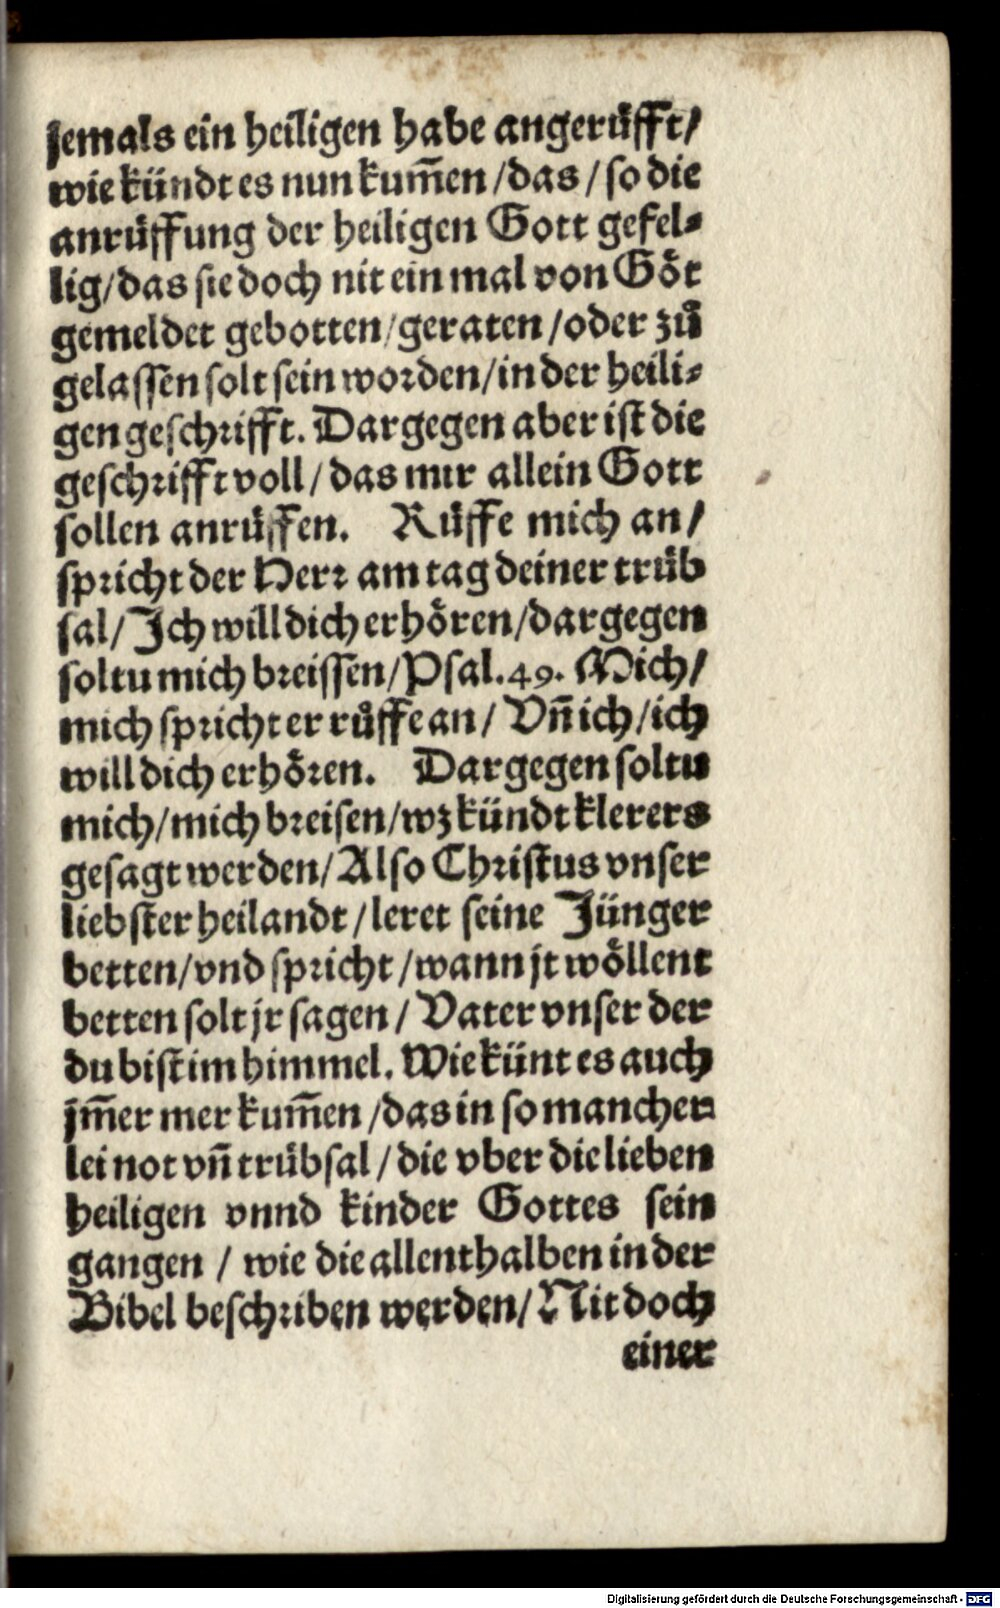 jemals ein heiligen habe angerüfft/
wie kündt es nun kum̃en /das / so die
anrüffung der heiligen Gott gefel⸗
lig/das sie doch nit ein mal von Gȯt
gemeldet gebotten/geraten /oder zů
gelassen solt sein worden/in der heili⸗
gen geschrifft. Dargegen aber ist die
geschrifft voll / das mir allein Gott
sollen anrüffen. Rüffe mich an/
spricht der Herr am tag deiner trüb
sal/ Ich will dich erhören/dargegen
soltu mich breissen/Psal.49. Mich/
mich spricht er růffe an/ Vñ ich/ich
will dich erhören. Dargegen soltu
mich/mich breisen/wz kündt klerers
gesagt werden/ Also Christus vnser
liebster heilandt /leret seine Jünger
betten/vnd spricht /wann jt wöllent
betten solt jr sagen / Vater vnser der
du bist im himmel. Wie künt es auch
jm̃er mer kum̃en /das in so mancher⸗
lei not vñ trübsal / die vber die lieben
heiligen vnnd kinder Gottes sein
gangen / wie die allenthalben in der
Bibel beschriben werden/ Nit doch
einer
Digitalisierung gefördert durch die Deutsche Forschungsgemeinschaft - DFG